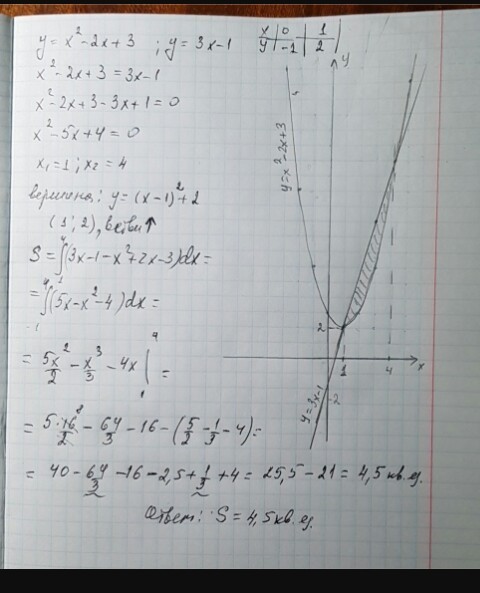 y = x² - 2x + 3 ; y = 3x - 1
x² - 2x + 3 = 3x - 1
x² - 2x + 3 - 3x + 1 = 0
x² - 5x + 4 = 0
x₁ = 1 ; x₂ = 4
вершина: y = (x - 1)² + 2
(1; 2), ветви ↑
S = ∫₁⁴ (3x - 1 - x² + 2x - 3) dx =
= ∫₁⁴ (5x - x² - 4) dx =
= 5x²/2 - x³/3 - 4x |₁⁴ =
= 5·16⁸/2 - 64/3 - 16 - (5/2 - 1/3 - 4) =
= 40 - 64/3 - 16 - 2,5 + 1/3 + 4 = 25,5 - 21 = 4,5 кв. ед.
Ответ: S = 4,5 кв. ед.
x | 0 | 1 |
y | -1 | 2 |
y
y = x² - 2x + 3
2
1
4
x
-2
y = 3x - 1